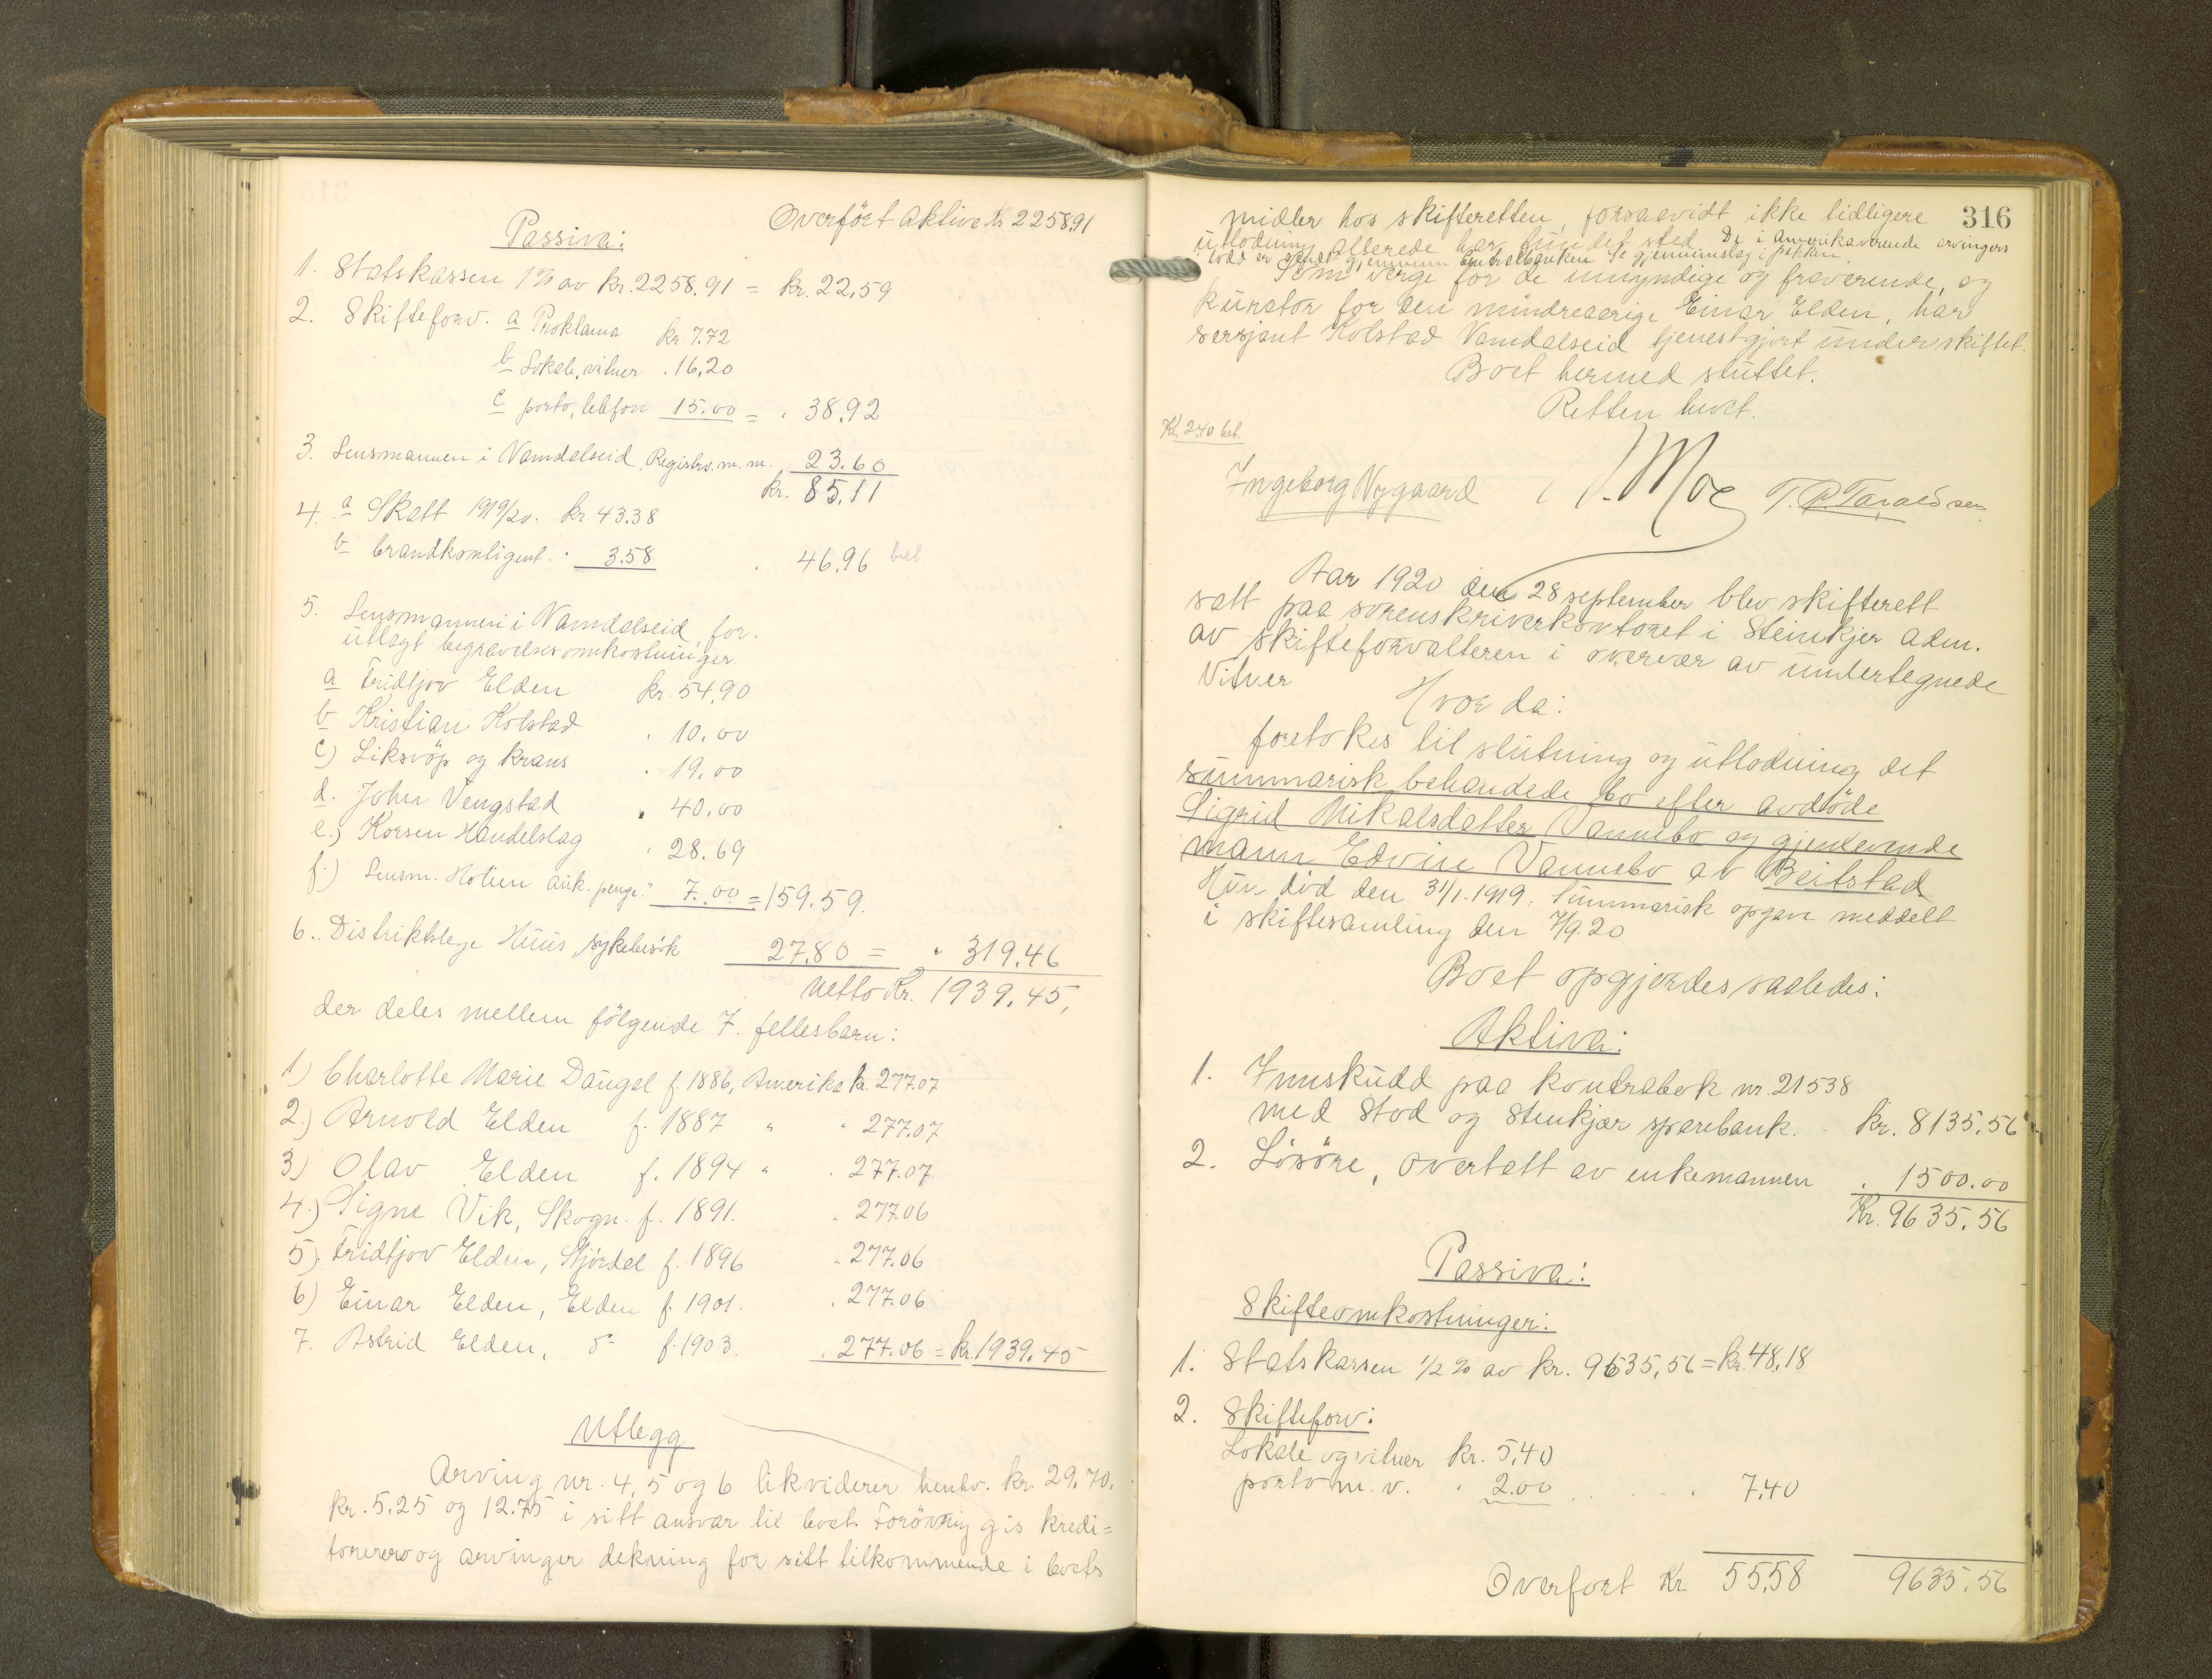 Overført Aktiva kr 2258.91
Passiva:
1. Statskassen 1% av kr. 2258.91 = kr. 22,59
2. Skifteforv. a Proklama kr 7.72
b Lokale, vitner . 16.20
c porto, telefon 15.00 = . 38.92
3. Lensmannen i Namdalseid, Registr. m.m. 23.60
kr. 85.11
4. a Skatt 1919/20. kr 43.38
b brandkontigent. . 3.58 . 46.96 bet
5. Lensmannen i Namdalseid, for.
utlagt begravelsesomkostninger
a Fridtjov Elden kr. 54,90
b Kristian Kolstad . 10.00
c) Liksvøp og krans . 19.00
d. Johs Vengstad . 40.00
e.) Korsen Handelslag . 28.69
f.) Lensm. Holien auk. penge " 7.00 = 159.59.
6. Distriktslege Huus, sykebesøk 27.80 = " 319.46
Netto Kr. 1939.45,
der deles mellem følgende 7. fellesbarn:
1) Charlotte Marie Daugal f. 1886, Amerika kr. 277.07
2.) Arnold Elden f. 1887 " " 277.07
3) Olav Elden f. 1894 " . 277.07
4.) Signe Vik, Skogn. f. 1891. . 277.06
5). Fridtjov Elden, Stjørdal f. 1896 . 277.06
6) Einar Elden, Elden f. 1901. . 277.06
7. Astrid Elden, do f. 1903. . 277.06 = kr. 1939.45
Utlegg
Arving nr. 4, 5 og 6 likviderer henhv. kr. 29.70,
kr. 5.25 og 12.75 i sitt ansvar til boet. Forøvrig gis kredi=
torerer og arvinger dekning for sitt tilkommende i boets
316
midler hos skifteretten, forsaavidt ikke tidligere
utlodning allerede har fundet sted. De i Amerikaværende arvingers
lodd er sendt gjennem Centralbanken se gjennemslag i pakken
Som verge for de umyndige og fraværende, og
kurator for den mindreaarige Einar Elden, har
sersjant Kolstad Namdalseid tjenestgjort under skiftet.
Boet hermed sluttet.
Retten hevet.
Kr. 2.40 bet.
Ingeborg Nygaard Moe T. P. Taraldsen
Aar 1920 den 28 september blev skifterett
satt paa sorenskriverkontoret i Steinkjer adm.
av skifteforvalteren i overvær av undertegnede
Vitner
Hvor da:
foretokes til slutning og utlodning det
summarisk behandede bo efter avdøde
Sigrid Mikalsdatter Vannebo og gjenlevende
mann Edvin Vannebo av Beitstad
Hun død den 31/1. 1919. Summarisk opgave meddelt
i skiftesamling den 7/9.20
Boet opgjordes saaledes:
Aktiva:
1. Innskudd paa kontrabok nr. 21538
med Stod og Stenkjær sparebank. . kr. 8135.56
2. Løsøre, overtatt av enkemannen . 1500.00
Kr. 9635.56
Passiva:
Skifteomkostninger:
1. Statskassen 1/2 % av kr. 9635,56 = kr. 48,18
2. Skifteforv:
Lokale og vitner kr. 5,40
porto m. v. . 2.00 . . . . 7.40
Overført Kr 55.58 9635.56